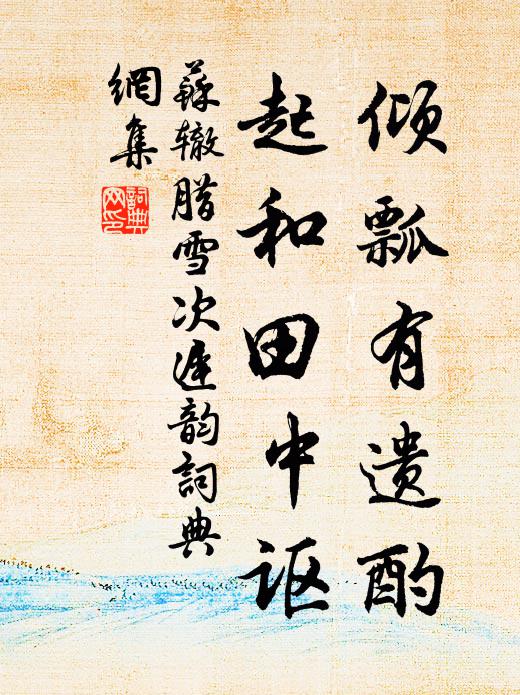 倾瓢有遗酌
起和田中讴
蘇辙腊雪次迟韵詞典
網集
詞典
网印